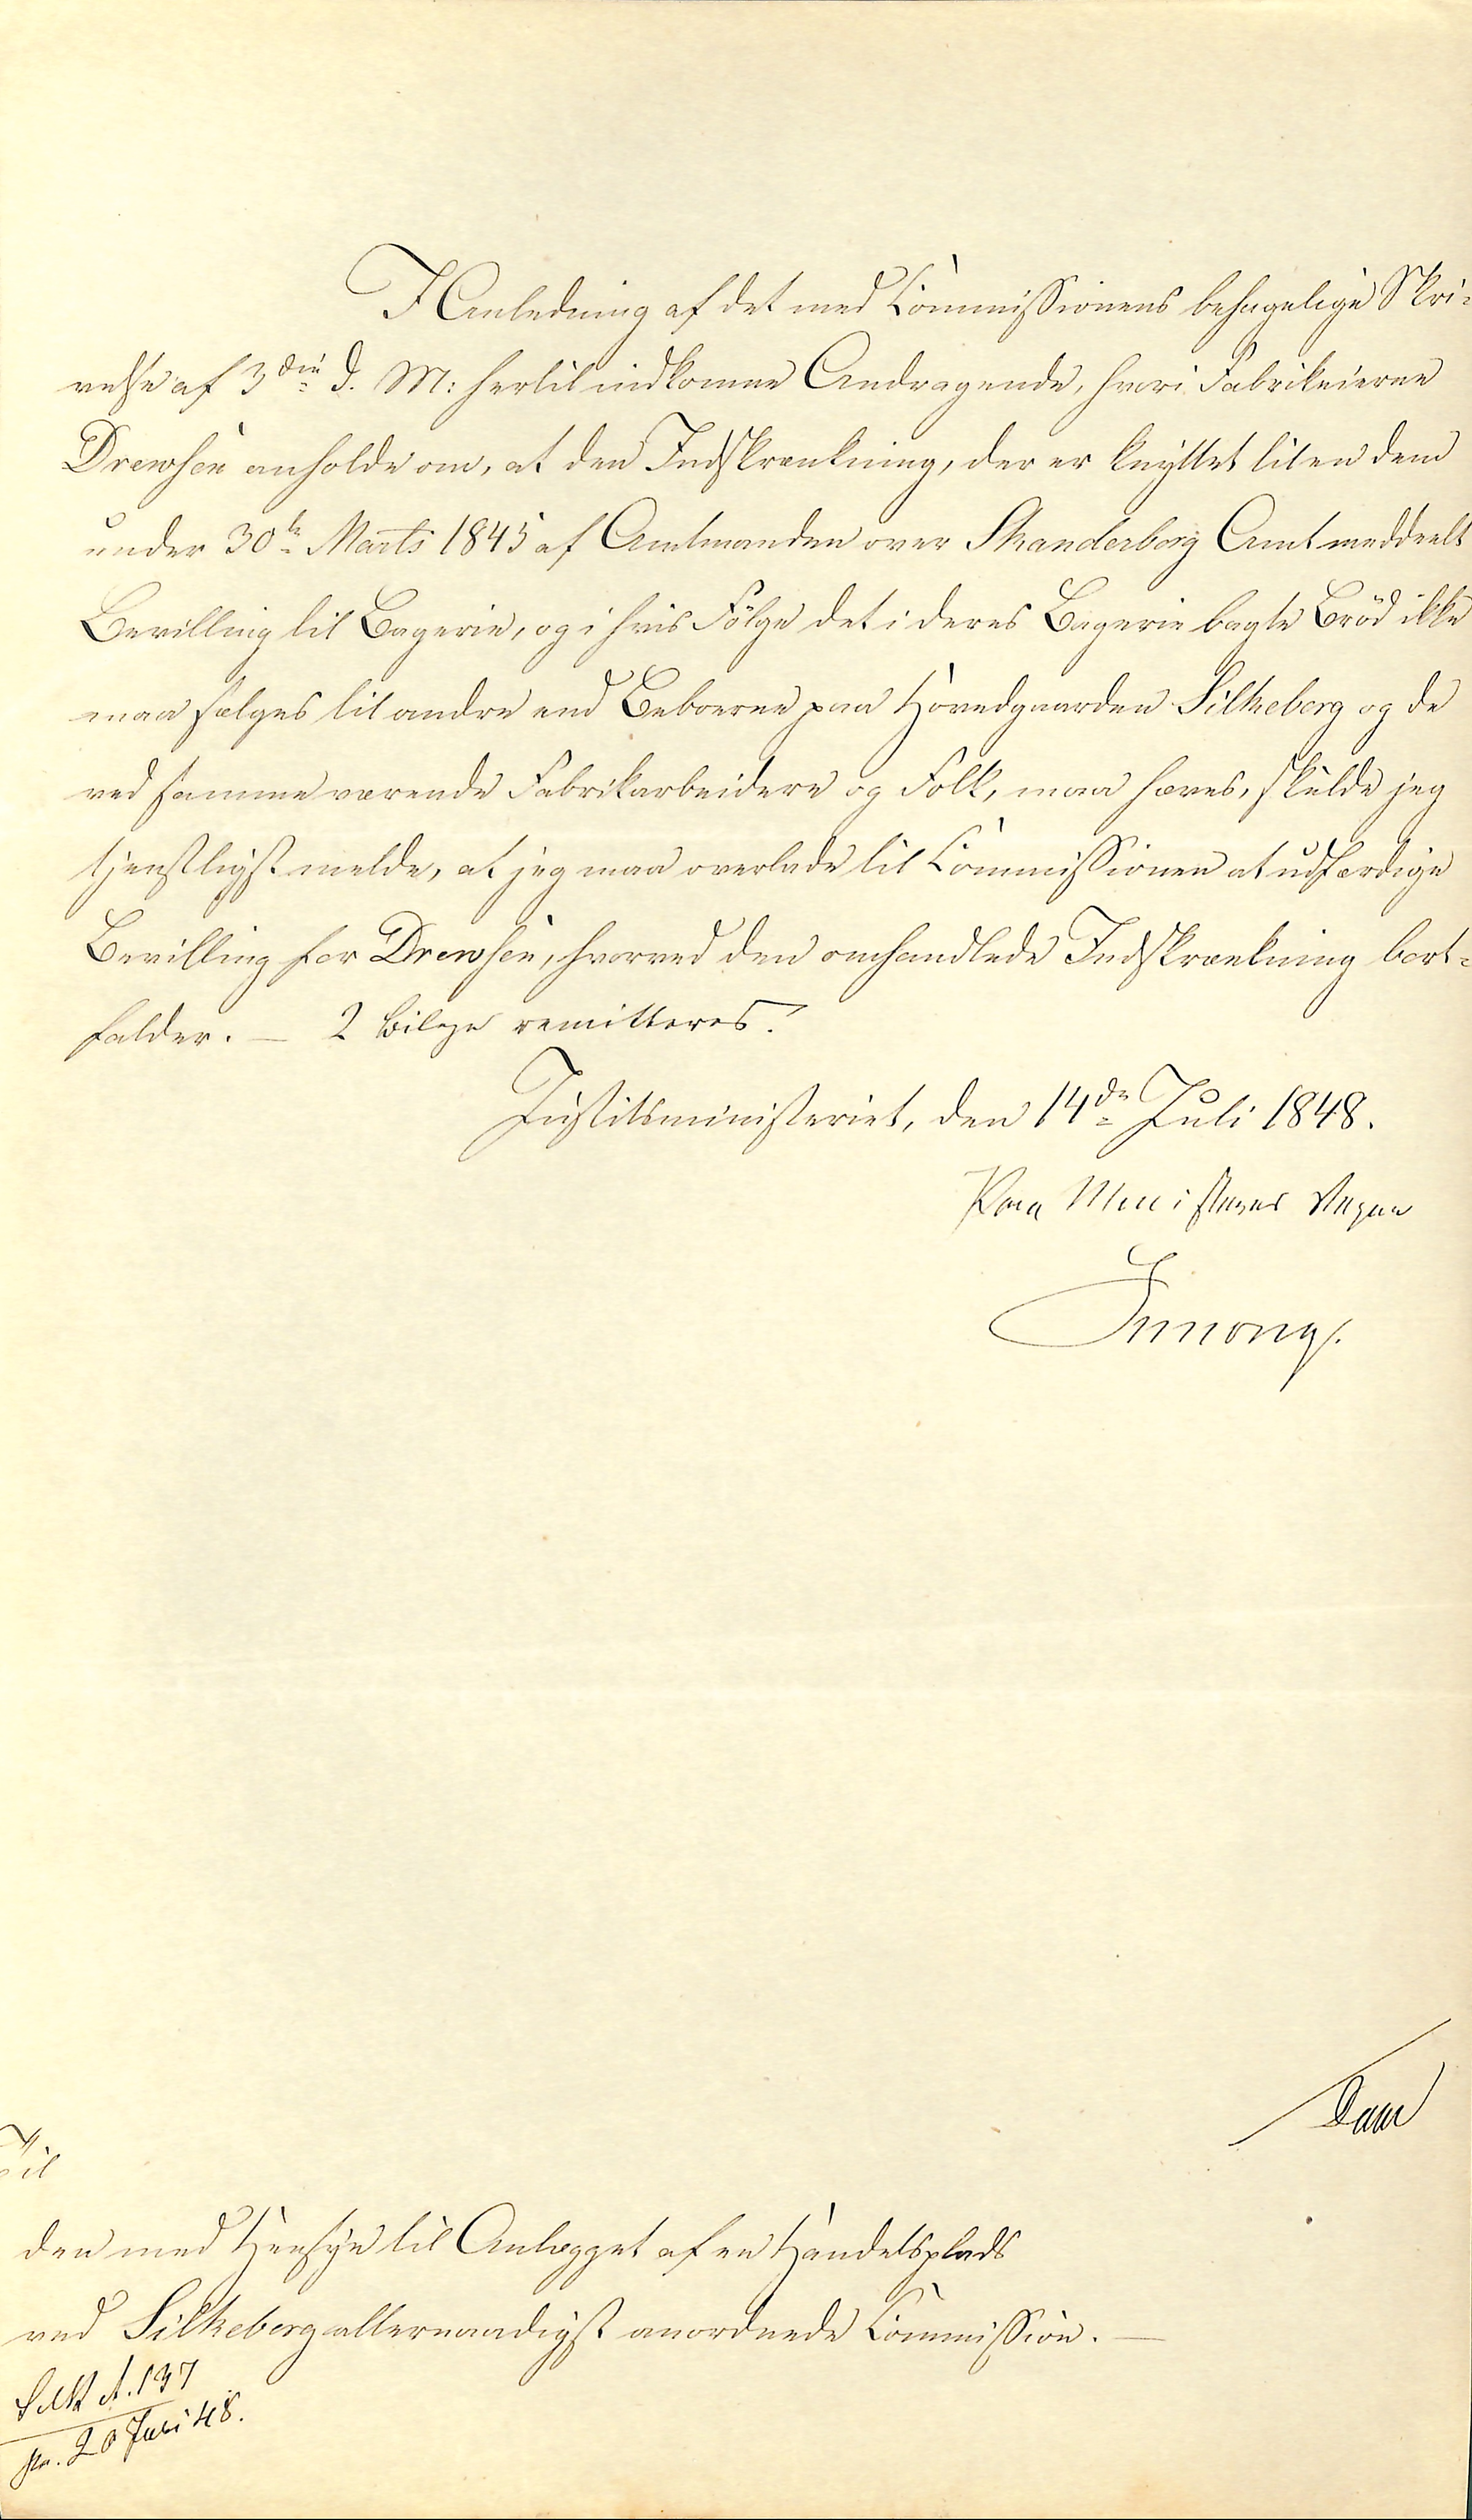 I Anledning af det med Commissionens behagelige Skri-
velse af 3die d. M: hertil indkomne Andragende, hvori Fabrikeierne
Drewsen anholde om, at den Indskrænkning, der er knyttet til en dem
under 30te Marts 1845 af Amtmanden over Skanderborg Amt meddeelt
Bevilling til Bagerie, og i hvis Følge det i deres Bagerie bagte Brød ikke
maa sælges til andre end Beboerne paa Hovedgaarden Silkeborg og de
ved samme værende Fabrikarbeidere og Folk, maa hæves, skulde jeg
tjenstligst melde, at jeg maa overlade til Commissionen at udfærdige
Bevilling for Drewsen, hvorved den omhandlede Indskrænkning bort-
falder. — 2 Bilage remitteres.
Justitsministeriet, den 14de Juli 1848.
Paa Ministerens Vegne
Til
den med Hensyn til Anlægget af en Handelsplads
ved Silkeborg allernaadigst anordnede Commission. —
Silk A. 137
pr. 20 Juli 48.